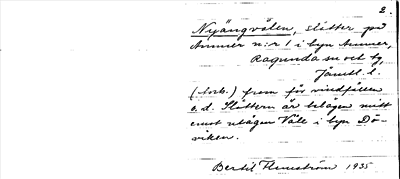 2.
Nyängvålen, slåtter på
Ammer n:r 1 i byn Ammer,
Ragunda sn och tg,
Jämtl. l.
(Anb.) fram för vindfällen
o.d. Slåttern är belägen mitt
emot utägen Våle i byn Dö-
viken.
Bertil Flemström 1935